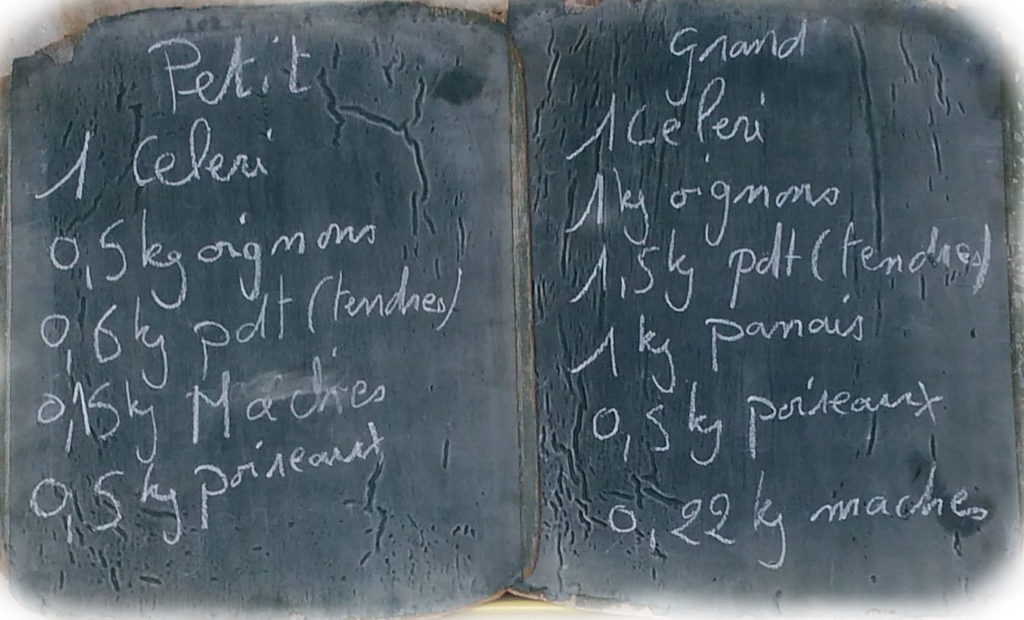 Petit
1 Celeri
0,5 kg oignons
0,6 kg pdt (tendres)
0,15 kg Maches
0,5 kg poireaux
Grand
1 Celeri
1 kg oignons
1,5 kg pdt (tendres)
1 kg panais
0,5 kg poireaux
0,22 kg maches